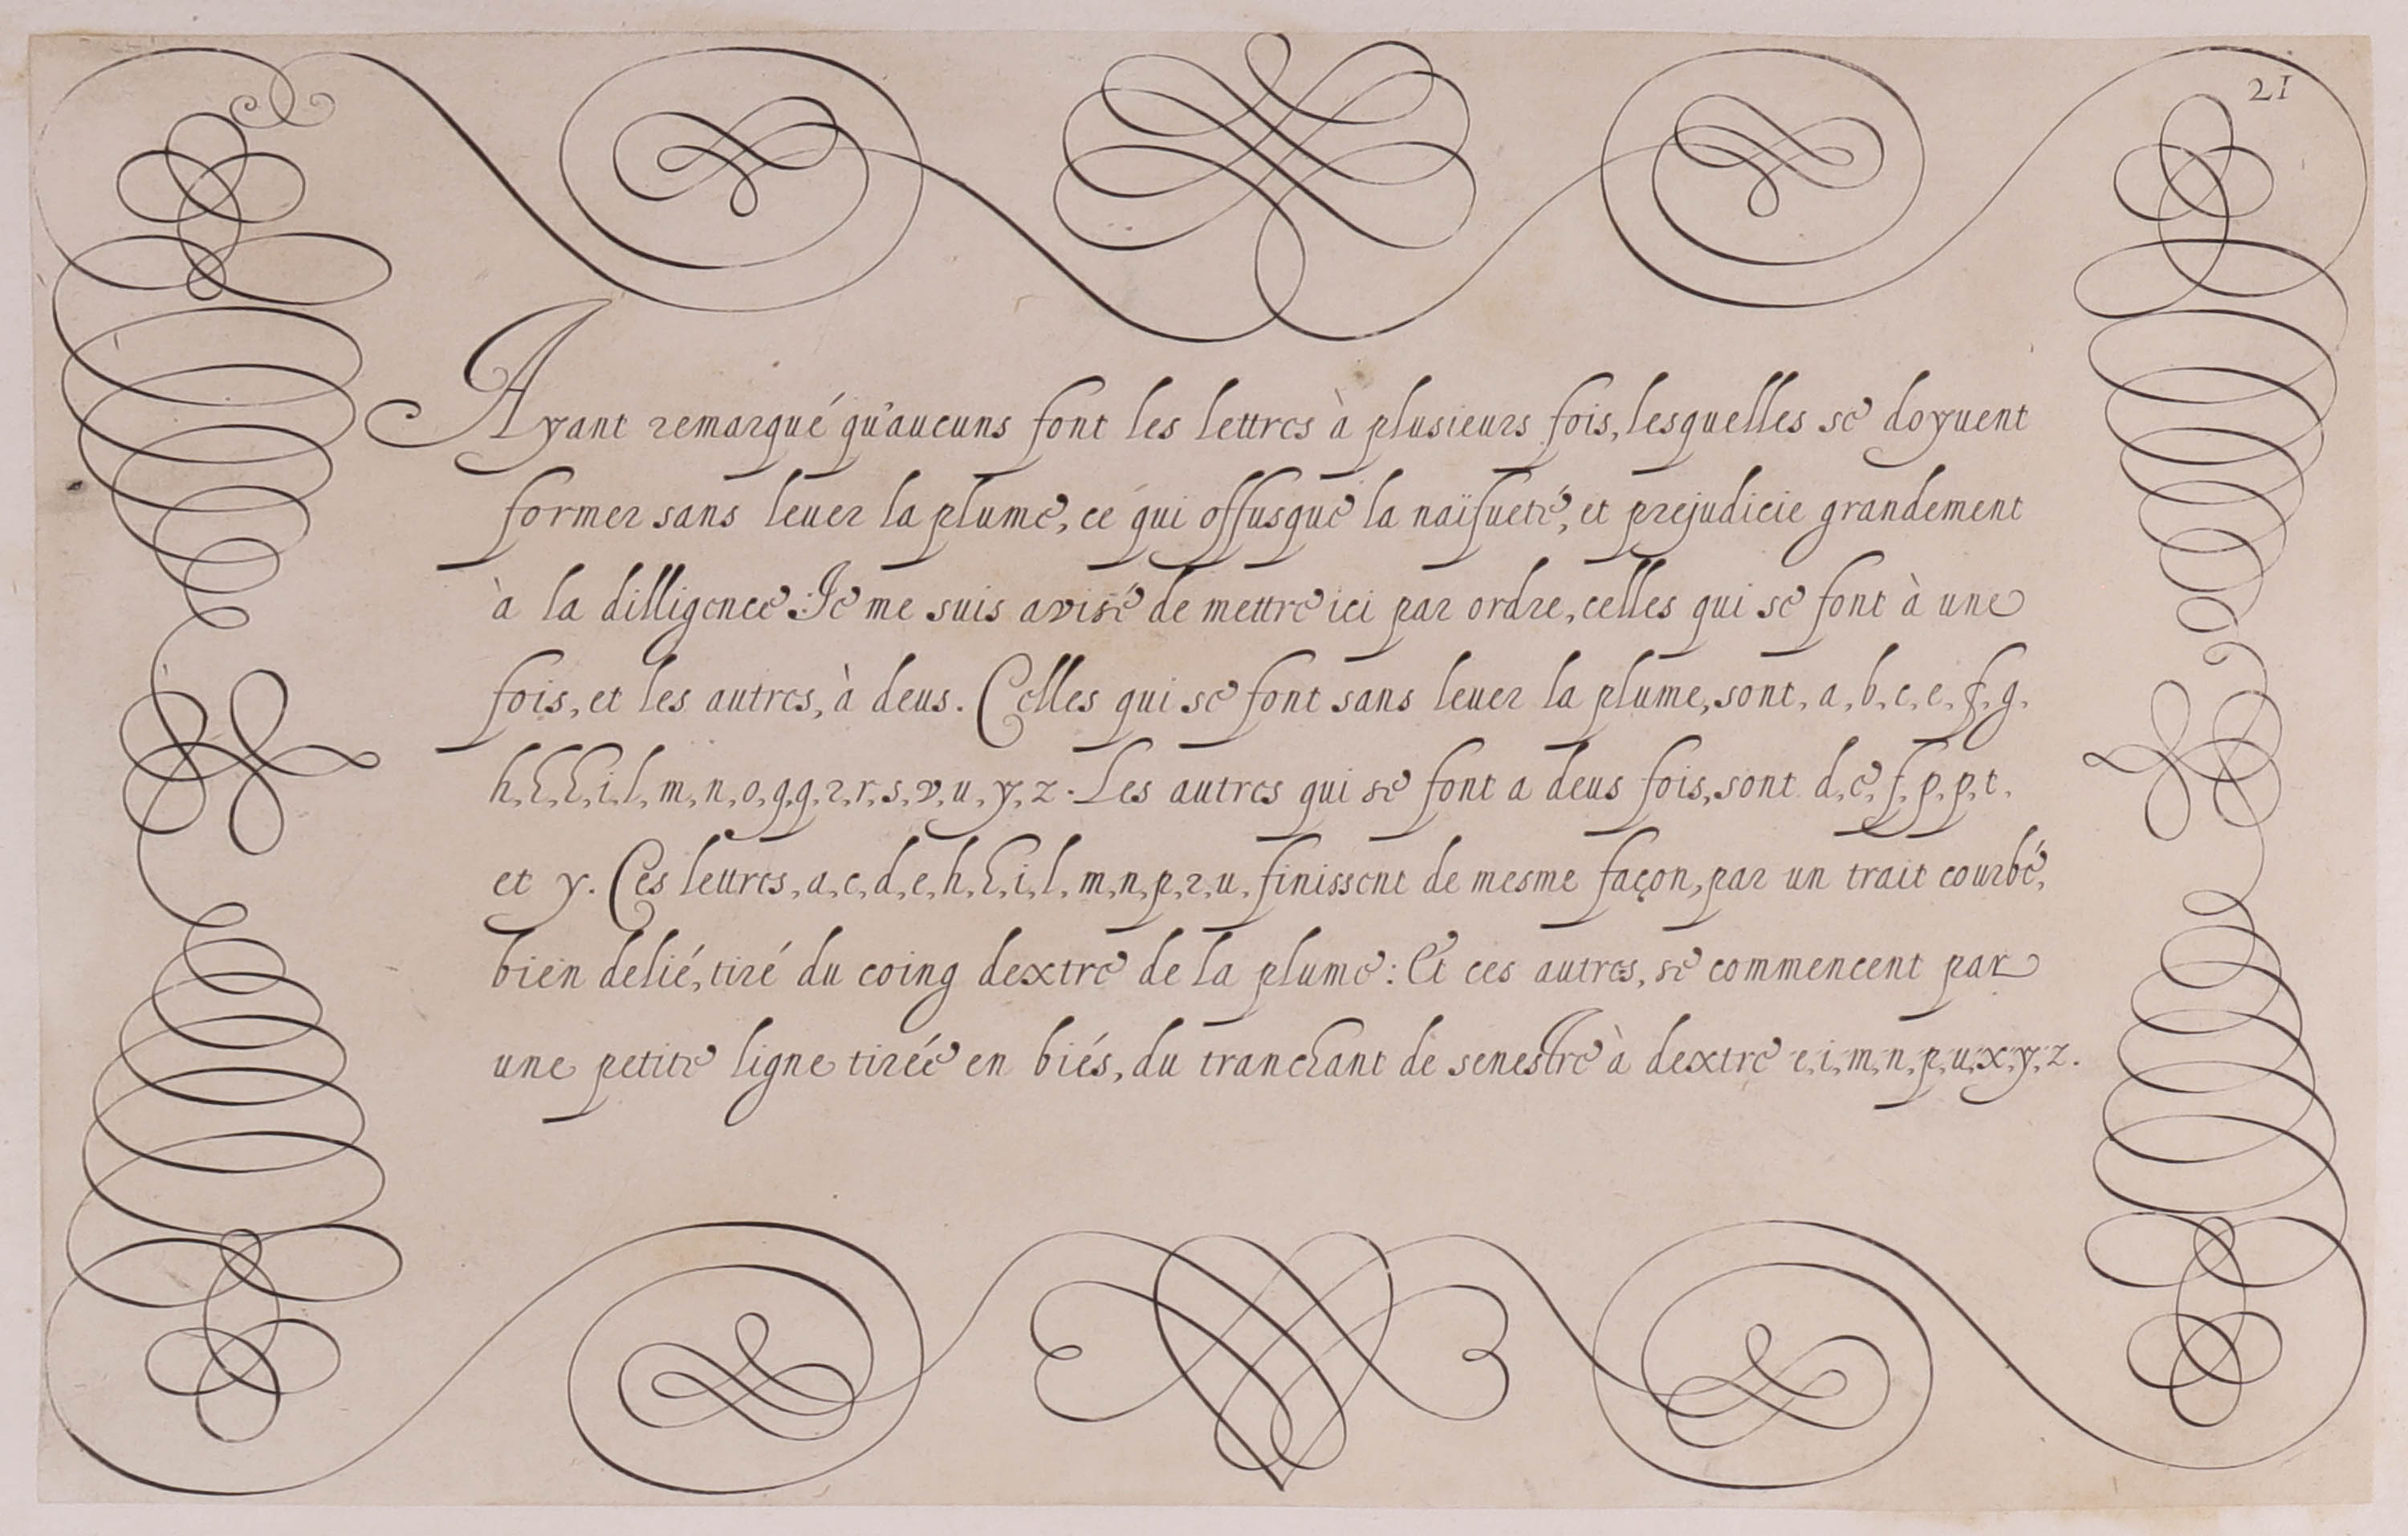 21
Ayant remarqué qu'aucuns font les lettres à plusieurs fois, lesquelles se doyuent
former sans leuer la plume, ce qui offusque la naïfueté, et prejudicie grandement
à la dilligence : Je me suis avisé de mettre ici par ordre, celles qui se font à une
fois, et les autres, à deus. Celles qui se font sans leuer la plume, sont, a, b, c, e, f, g,
h, h, h, i, l, m, n, o, q, q, r, r, s, v, u, y, z. Les autres qui se font a deus fois, sont d, e, f, p, p, t,
et y. Ces lettres, a, c, d, e, h, h, i, l, m, n, p, r, u, finissent de mesme façon, par un trait courbé,
bien delié, tiré du coing dextre de la plume : Et ces autres, se commencent par
une petite ligne tirée en biés, du tranchant de senestre à dextre e, i, m, n, p, u, x, y, z.